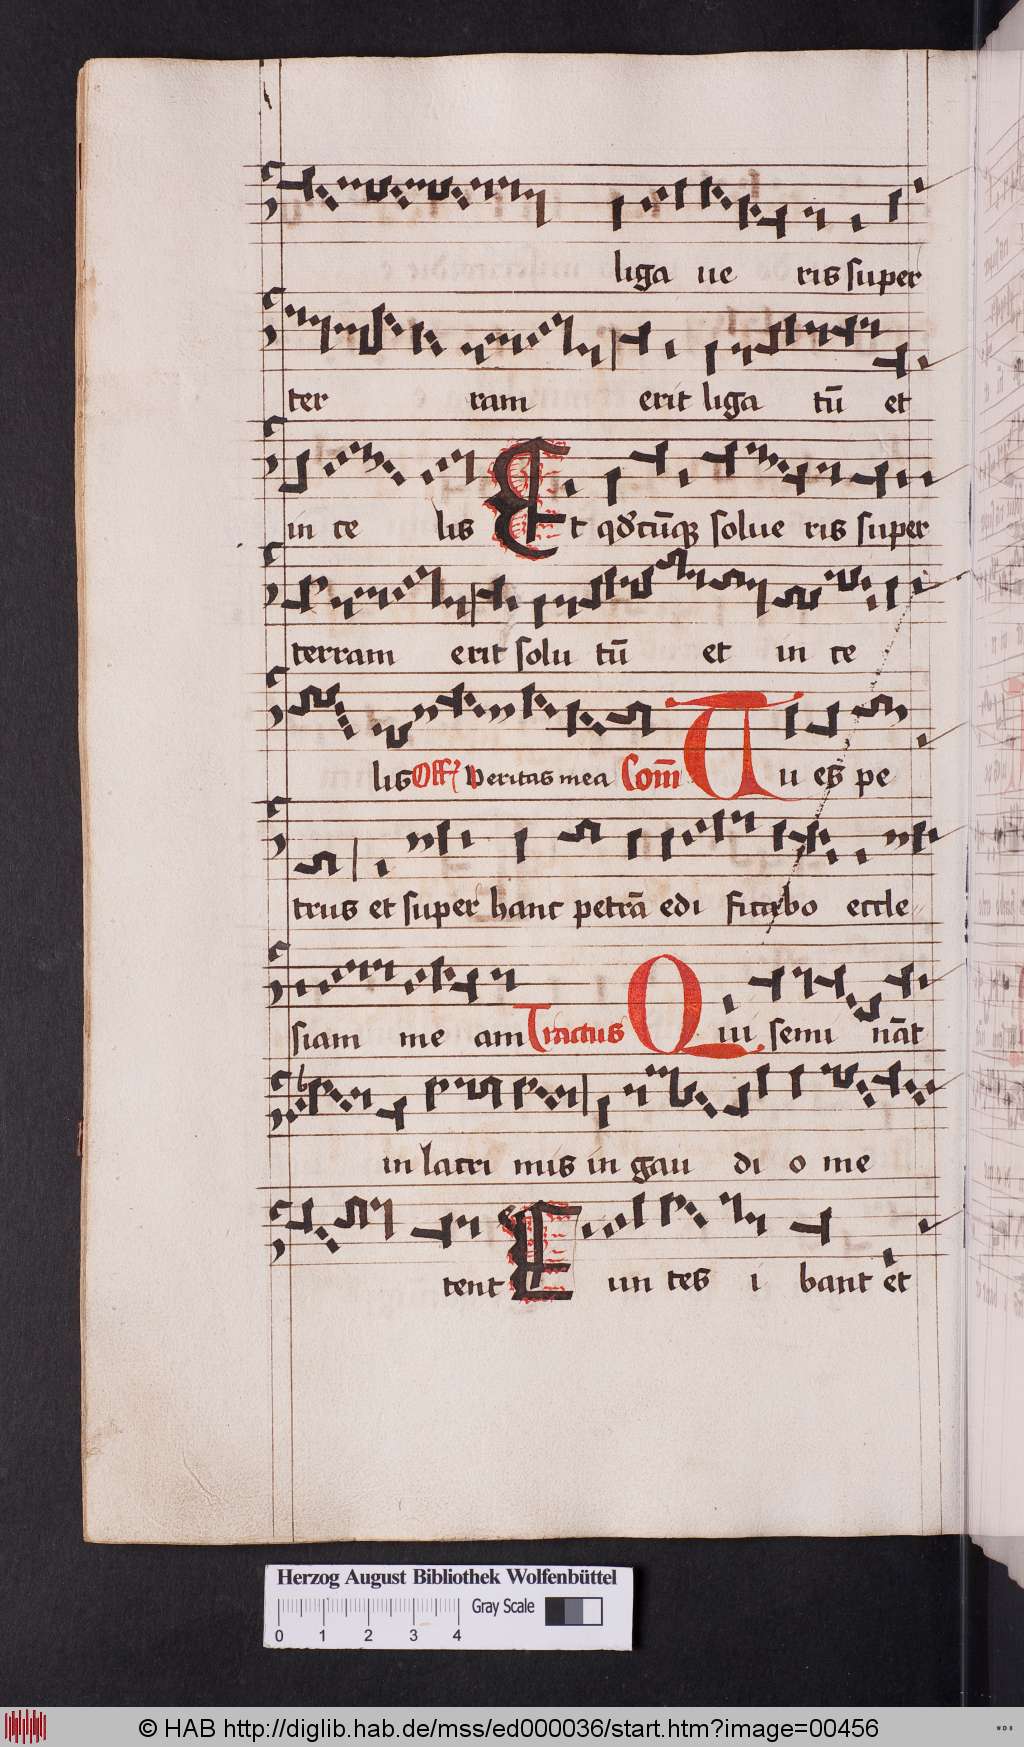 liga ue ris super
ter ram erit liga tū et
in ce lis Et qdcūqȝ solue ris super
terram erit solu tū et in ce
lis Off Veritas mea Com̄ Tu es pe
trus et super hanc petrā edi ficabo eccle
siam me am Tractus Qui semi nāt
in lacri mis in gau di o me
tent Eun tes i bant et
Herzog August Bibliothek Wolfenbüttel
Gray Scale
0 1 2 3 4
© HAB http://diglib.hab.de/mss/ed000036/start.htm?image=00456